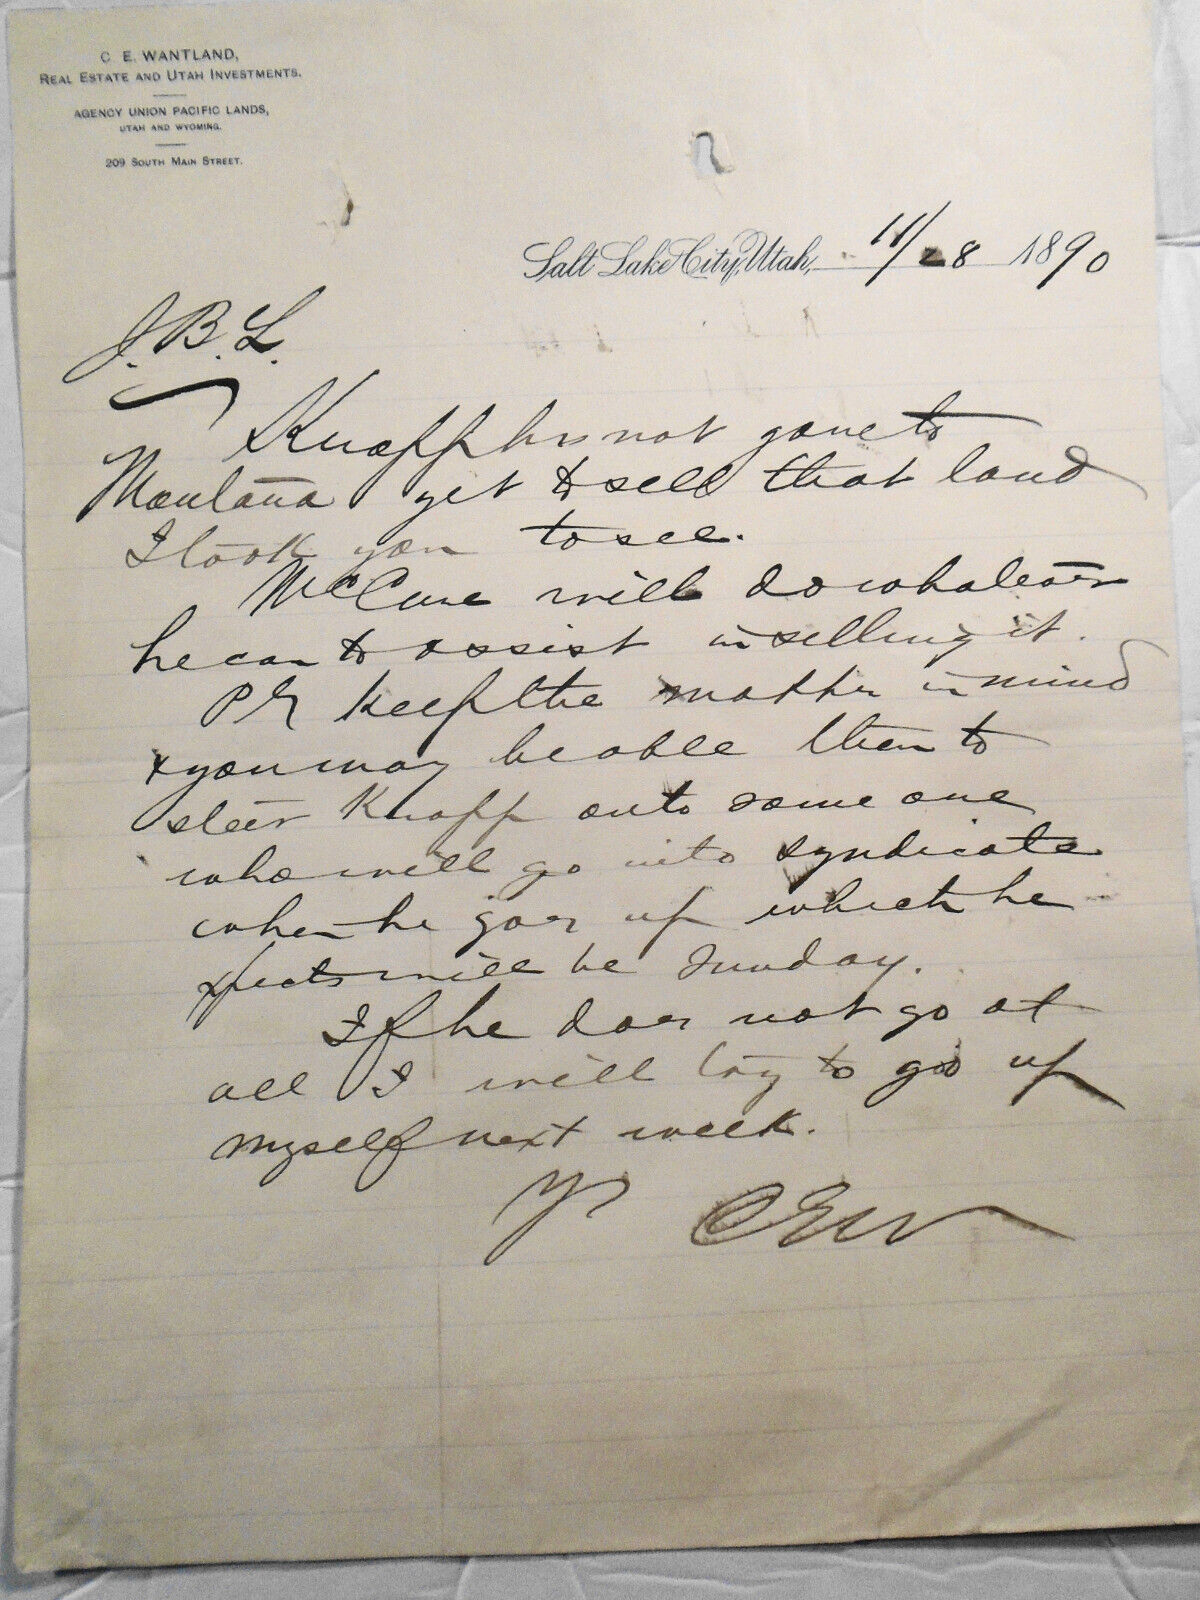 C. E. WANTLAND,
REAL ESTATE AND UTAH INVESTMENTS.
AGENCY UNION PACIFIC LANDS,
UTAH AND WYOMING.
209 SOUTH MAIN STREET.
Salt Lake City, Utah, 11/28 1890
J. B. L.
Knapp has not gone to
Montana yet to sell that land
I took you to see.
McCune will do whatever
he can to assist in selling it.
Pls keep the matter in mind
& you may be able then to
steer Knapp onto some one
who will go into syndicate
when he goes up which he
xpects will be Sunday.
If he does not go at
all I will try to go up
myself next week.
Yrs CEW